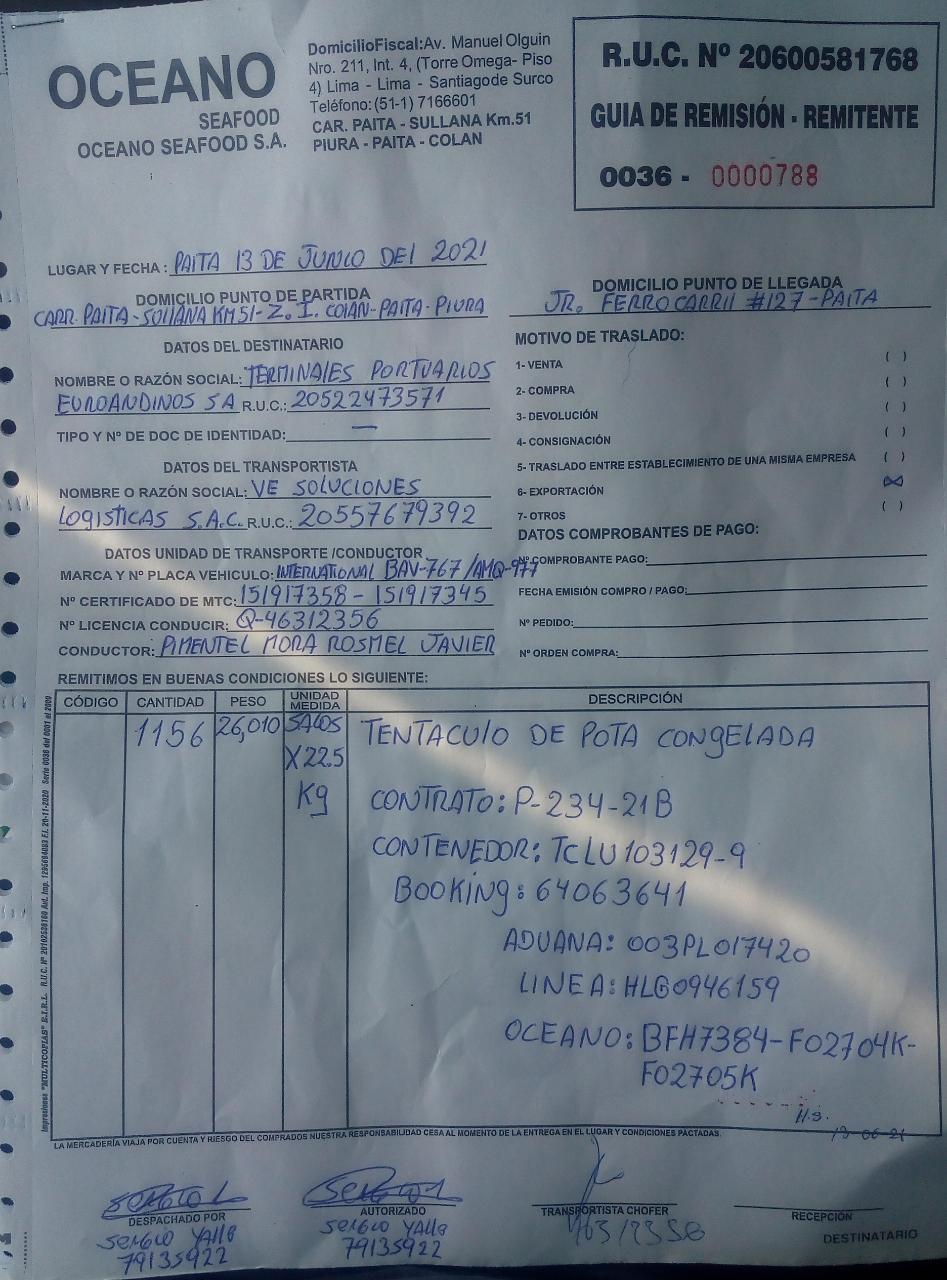 OCEANO
SEAFOOD
OCEANO SEAFOOD S.A.
DomicilioFiscal:Av. Manuel Olguin
Nro. 211, Int. 4, (Torre Omega- Piso
4) Lima - Lima - Santiagode Surco
Teléfono:(51-1) 7166601
CAR. PAITA - SULLANA Km.51
PIURA - PAITA - COLAN
R.U.C. Nº 20600581768
GUIA DE REMISIÓN - REMITENTE
0036 - 0000788
LUGAR Y FECHA : PAITA 13 DE JUNIO DEL 2021
DOMICILIO PUNTO DE PARTIDA
CARR. PAITA-SULLANA KM 51-Z.I. COLAN-PAITA-PIURA
DOMICILIO PUNTO DE LLEGADA
JR. FERROCARRIL #127-PAITA
DATOS DEL DESTINATARIO
NOMBRE O RAZÓN SOCIAL: TERMINALES PORTUARIOS
EUROANDINOS SA R.U.C.: 20522473571
TIPO Y Nº DE DOC DE IDENTIDAD: —
DATOS DEL TRANSPORTISTA
NOMBRE O RAZÓN SOCIAL: VE SOLUCIONES
LOGISTICAS S.A.C. R.U.C.: 20557679392
DATOS UNIDAD DE TRANSPORTE /CONDUCTOR
MARCA Y Nº PLACA VEHICULO: INTERNATIONAL BAV-767/AMQ-977
Nº CERTIFICADO DE MTC: 151917358 - 151917345
Nº LICENCIA CONDUCIR: Q-46312356
CONDUCTOR: PIMENTEL MORA ROSMEL JAVIER
MOTIVO DE TRASLADO:
1- VENTA ( )
2- COMPRA ( )
3- DEVOLUCIÓN ( )
4- CONSIGNACIÓN ( )
5- TRASLADO ENTRE ESTABLECIMIENTO DE UNA MISMA EMPRESA ( )
6- EXPORTACIÓN (X)
7- OTROS ( )
DATOS COMPROBANTES DE PAGO:
Nº COMPROBANTE PAGO:
FECHA EMISIÓN COMPRO / PAGO:
Nº PEDIDO:
Nº ORDEN COMPRA:
REMITIMOS EN BUENAS CONDICIONES LO SIGUIENTE:
CÓDIGO CANTIDAD PESO UNIDAD MEDIDA DESCRIPCIÓN
1156 26,010 SACOS TENTACULO DE POTA CONGELADA
X 22.5
Kg
CONTRATO: P-234-21B
CONTENEDOR: TCLU103129-9
BOOKING: 64063641
ADUANA: 003PL017420
LINEA: HLG0946159
OCEANO: BFH7384-F02704K-
F02705K
H.S.
13-06-21
Impresiones "MULTICOPIAS" E.I.R.L. R.U.C. Nº 20102536160 Aut. Imp. 1295694083 F.I. 20-11-2020 Serie 0036 del 0001 al 2000
LA MERCADERÍA VIAJA POR CUENTA Y RIESGO DEL COMPRADOS NUESTRA RESPONSABILIDAD CESA AL MOMENTO DE LA ENTREGA EN EL LUGAR Y CONDICIONES PACTADAS.
DESPACHADO POR
SERGIO YALLE
79135922
AUTORIZADO
SERGIO YALLE
79135922
TRANSPORTISTA CHOFER
RECEPCIÓN
DESTINATARIO